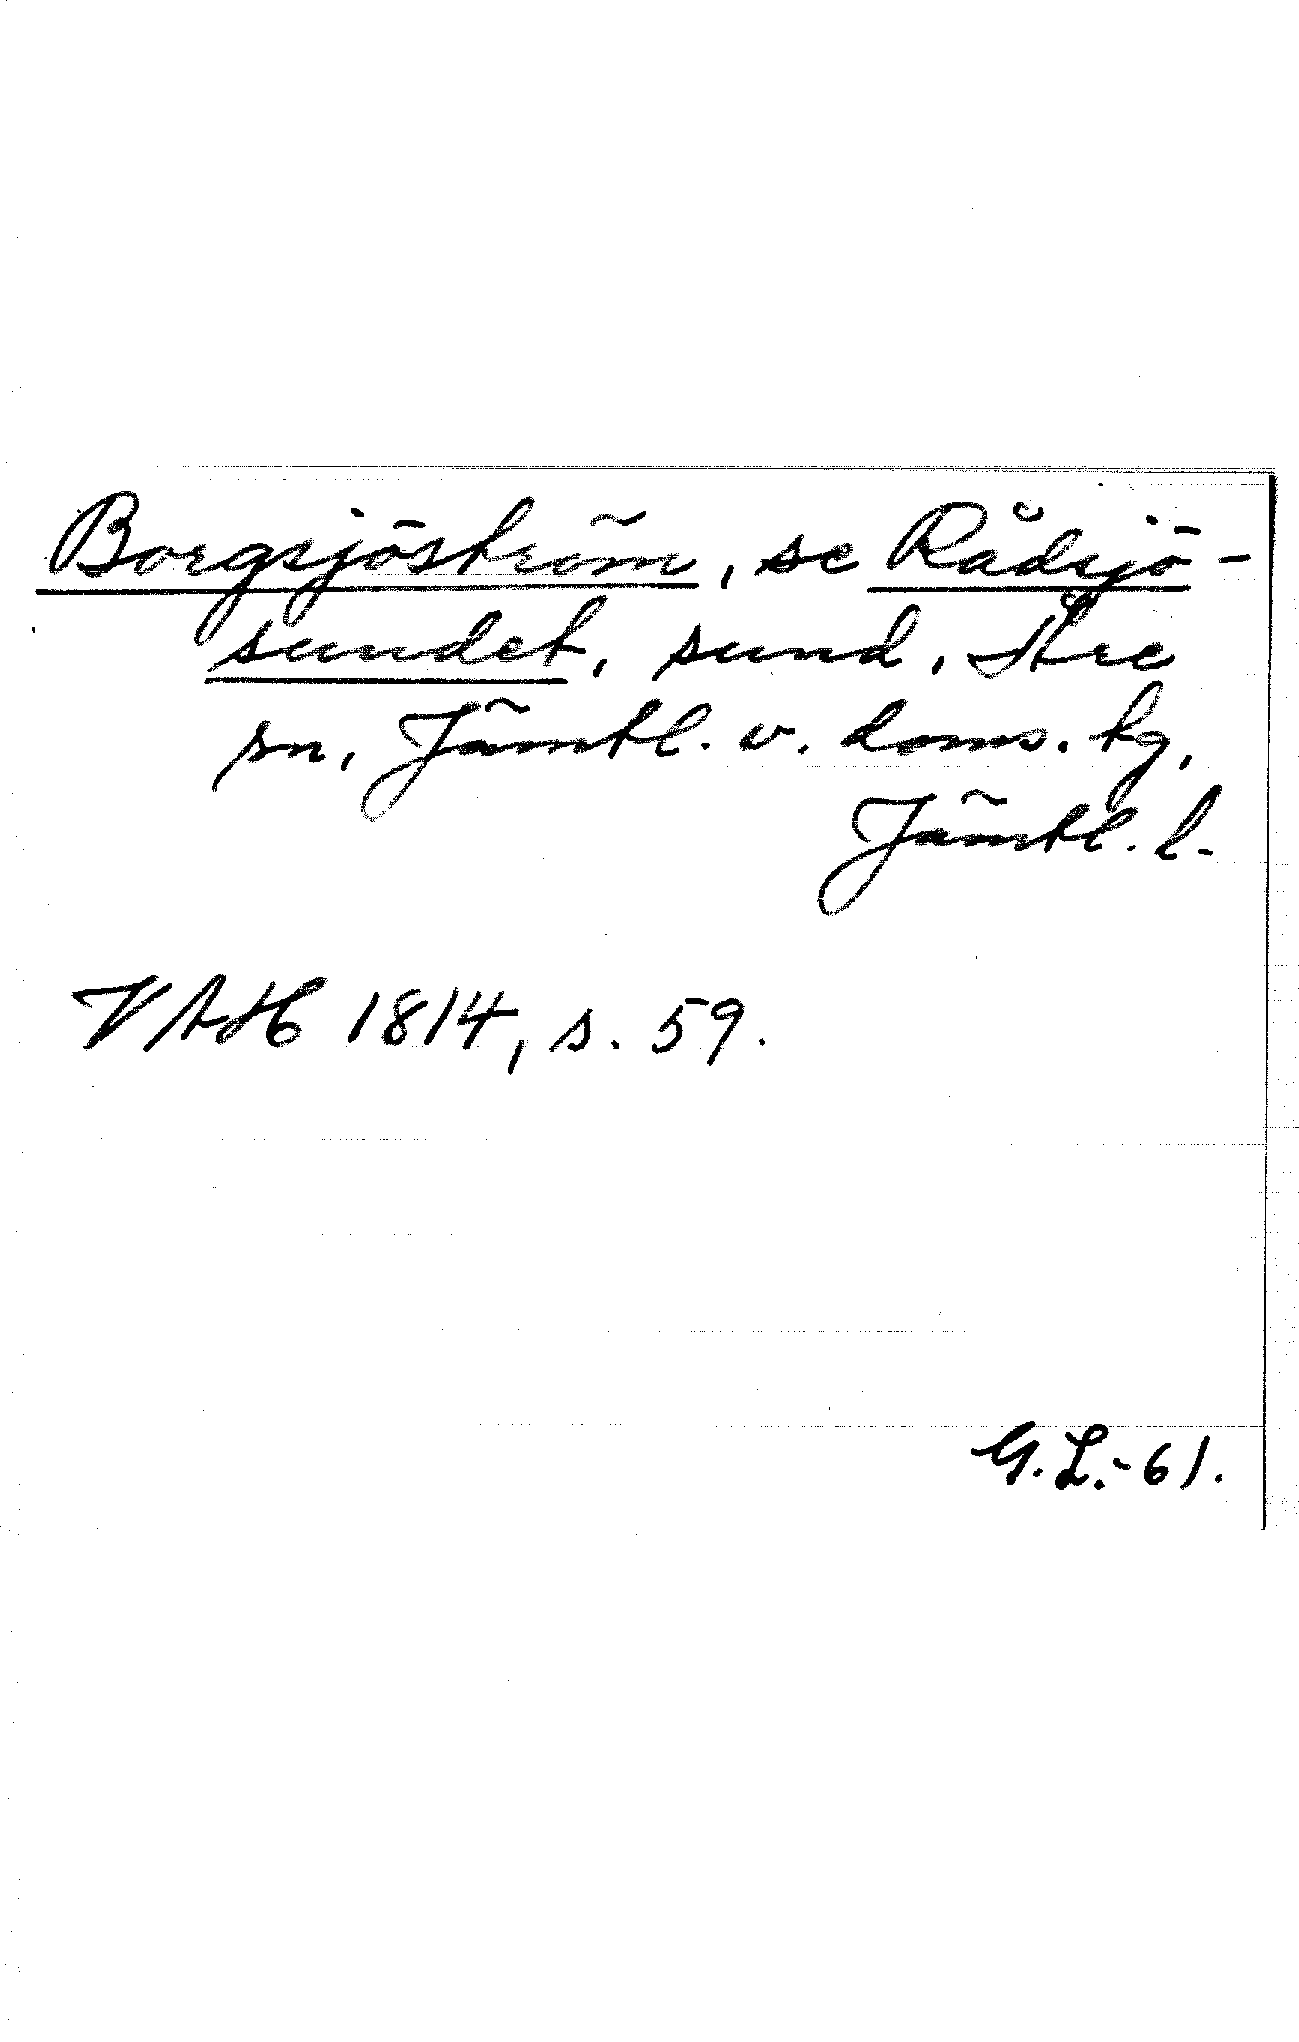 Borgsjöström, se Rådsjö-
sundet, sund, Åre
sn, Jämtl. v. doms. tg,
Jämtl. l.
VAH 1814, s. 59.
G.L.-61.